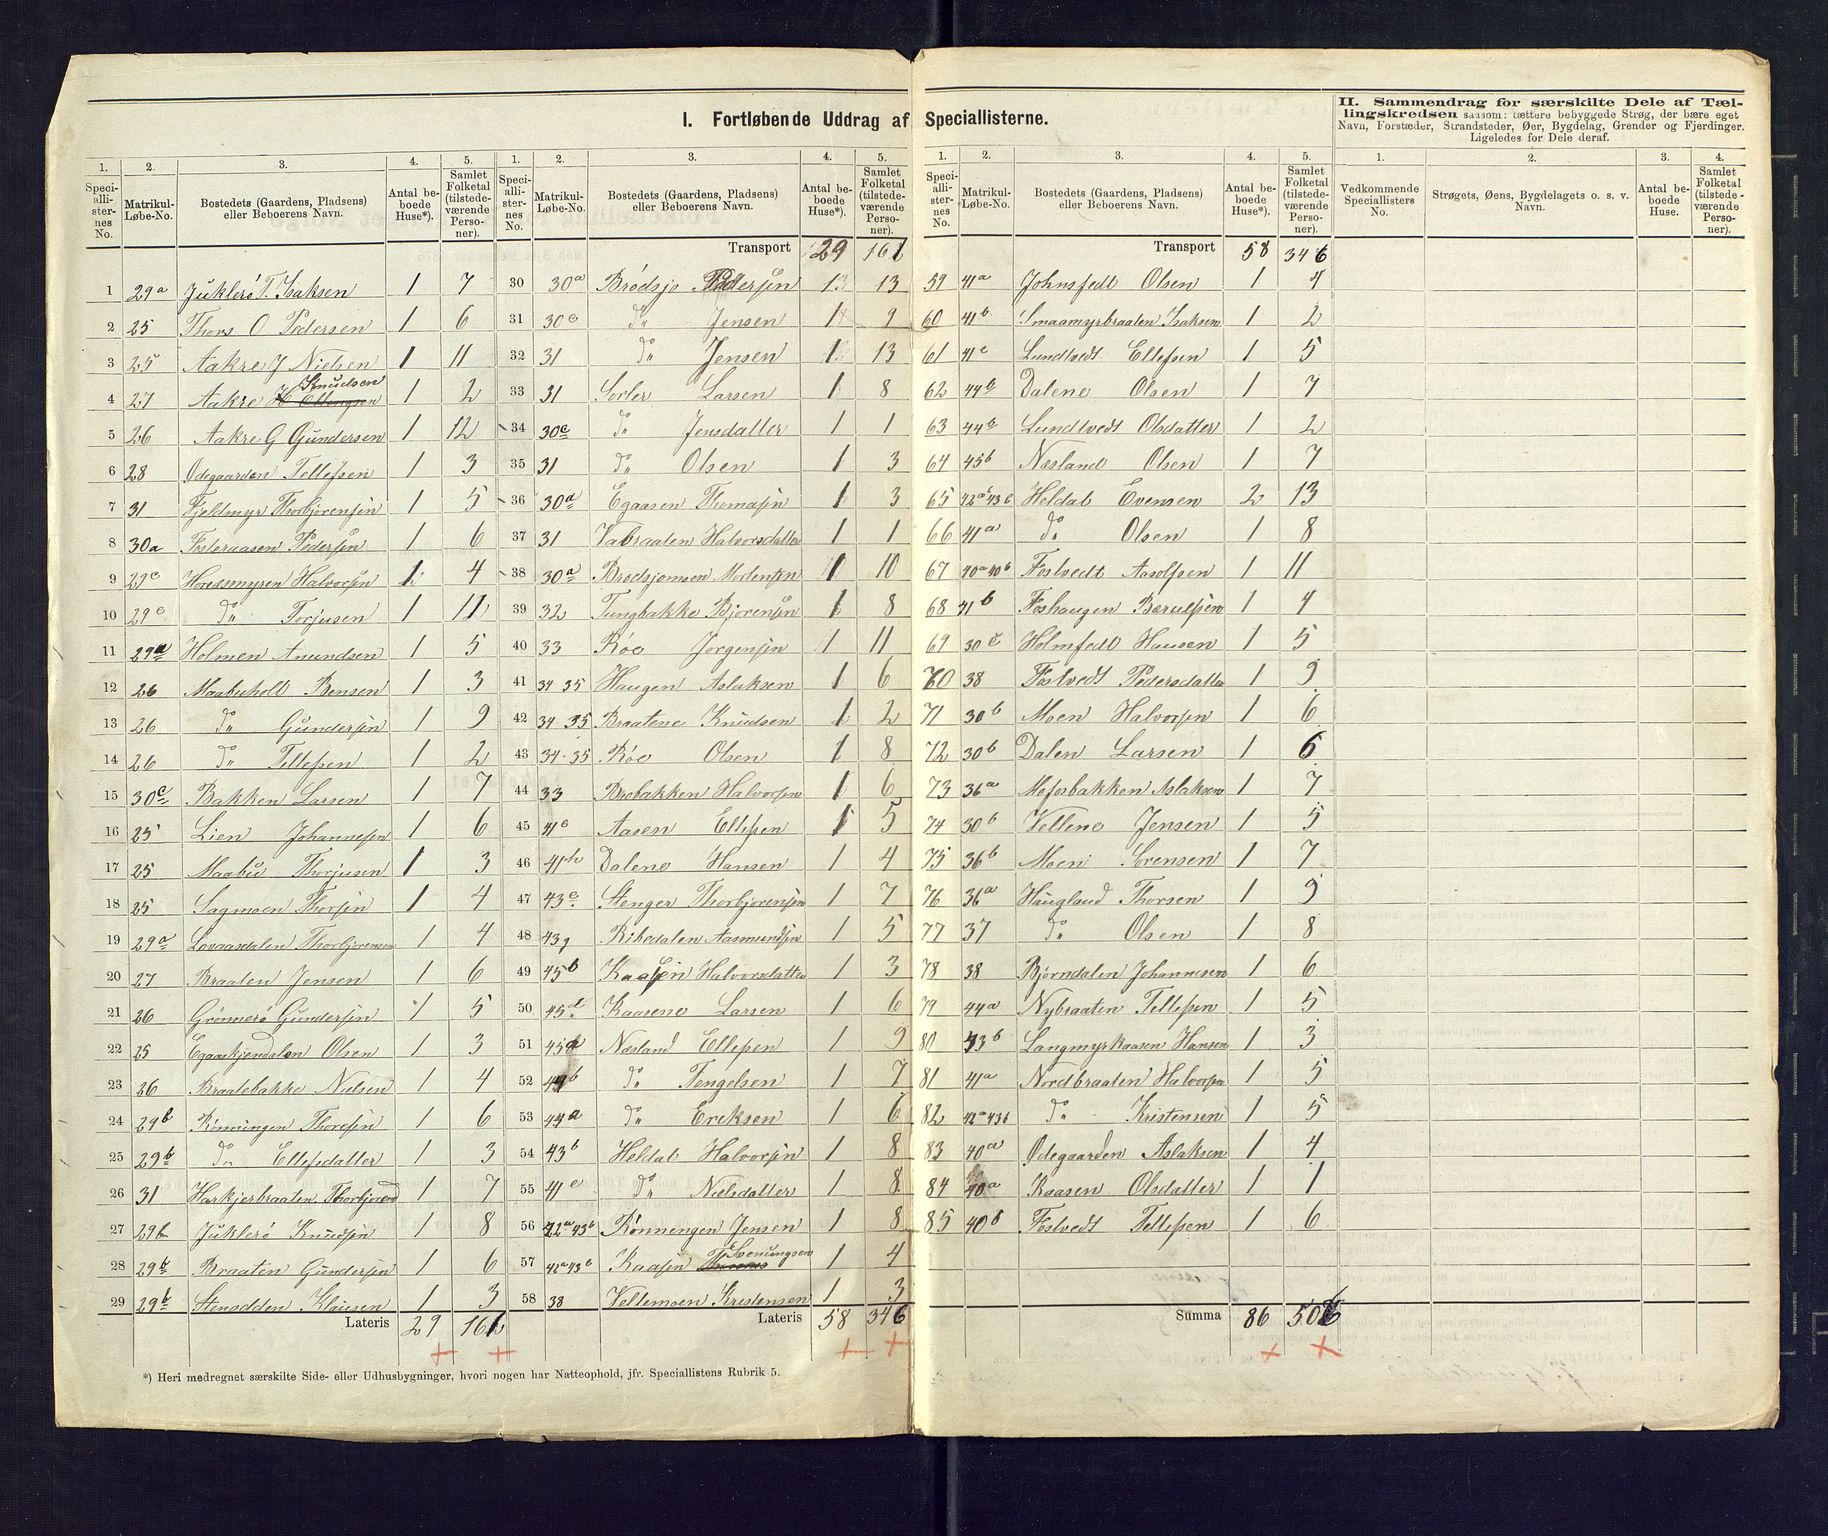 I. Fortløbende Uddrag af Speciallisterne.
II. Sammendrag for særskilte Dele af Tællingskredsen saasom: tættere bebyggede Strøg, der bære eget
Navn, Forstæder, Strandsteder, Øer, Bygdelag, Grender og Fjerdinger.
Ligeledes for Dele deraf.
1. 2. 3. 4. 5. 1. 2. 3. 4. 5. 1. 2. 3. 4. 5. 1. 2. 3. 4.
Speciallisternes No. Matrikul-Løbe-No. Bostedets (Gaardens, Pladsens) eller Beboerens Navn. Antal beboede Huse*). Samlet Folketal (tilstedeværende Personer).
Speciallisternes No. Matrikul-Løbe-No. Bostedets (Gaardens, Pladsens) eller Beboerens Navn. Antal beboede Huse*). Samlet Folketal (tilstedeværende Personer).
Speciallisternes No. Matrikul-Løbe-No. Bostedets (Gaardens, Pladsens) eller Beboerens Navn. Antal beboede Huse*). Samlet Folketal (tilstedeværende Personer).
Vedkommende Speciallisters No. Strøgets, Øens, Bygdelagets o. s. v. Navn. Antal beboede Huse. Samlet Folketal (tilstedeværende Personer).
1 29a Juklerø T. Isaksen 1 7
2 25 Thors O Pedersen 1 6
3 25 Aakre J Nielsen 1 11
4 27 Aakre H Ellingsen Knudsen 1 2
5 26 Aakre G Gundersen 1 12
6 28 Ødegaarden Tellefsen 1 3
7 31 Fjeldmyr Thorbjørensen 1 5
8 30a Fosteraasen Pedersen 1 6
9 29c Hovedsmyren Halvorsen 1 4
10 29c do Torjusen 1 11
11 29a Holmen Anundsen 1 5
12 26 Maabuholt Bensen 1 3
13 26 do Gundersen 1 9
14 26 do Tellefsen 1 2
15 30c Bakken Larsen 1 7
16 25 Lien Johannesen 1 6
17 25 Maabu Thorjusen 1 3
18 25 Sagmoen Thorsen 1 4
19 29a Lovaasdalen Thorbjørensen 1 4
20 27 Braaten Jensen 1 6
21 26 Grønnerø Gundersen 1 5
22 25 Egaaskjendalen Olsen 1 3
23 26 Braatebakke Nielsen 1 4
24 29b Rønningen Thoresen 1 6
25 29b do Ellefsdatter 1 3
26 31 Harkjerbraaten Thorbjørens 1 7
27 29b Juklerø Knudsen 1 8
28 29b Braaten Gundersen 1 6
29 29b Stenodden Klausen 1 3
Lateris 29 161
Transport 29 161
30 30a Brødsjø Pedersen 13 13
31 30c do Jensen 1 9
32 31 do Jensen 1 13
33 31 Sorler Larsen 1 8
34 30c do Jensdatter 1 1
35 31 do Olsen 1 3
36 30a Egaasen Thomasen 1 3
37 31 Vabraaten Halvorsdatter 1 1
38 30a Brødsjømoen Mortensen 1 10
39 32 Tungbakke Bjørensen 1 8
40 33 Röe Jørgensen 1 11
41 34 35 Haugen Aslaksen 1 6
42 34 35 Braatene Knudsen 1 2
43 34-35 Röe Olsen 1 8
44 33 Brobakken Halvorsen 1 6
45 41c Aasen Ellefsen 1 5
46 41h Dalene Hansen 1 4
47 43c Stenger Thorbjørensen 1 7
48 43g Ribedalen Aasmundsen 1 5
49 45b Kaasen Halvorsdatter 1 3
50 45d Kaasene Larsen 1 6
51 45a Næsland Ellefsen 1 9
52 44b do Tengelsen 1 7
53 44a do Ericksen 1 6
54 43b Heldal Halvorsen 1 8
55 41e do Nielsdatter 1 8
56 42a 43b Rønningen Jensen 1 8
57 42a 43b Kaasen Svenungsen 1 4
58 38 Vellemoen Kristensen 1 3
Lateris 58 346
Transport 58 346
59 41a Johnsfedt Olsen 1 4
60 41b Smaamyrbraaten Isaksen 1 2
61 41c Lundtvedt Ellefsen 1 5
62 44b Dalene Olsen 1 7
63 44b Lundtvedt Olsdatter 1 2
64 45b Næsland Olsen 1 7
65 42a 43c Heldal Evensen 2 13
66 41a do Olsen 1 8
67 40a 40b Fostvedt Aasolfsen 1 11
68 41b Foshaugen Bærulfsen 1 4
69 30c Holmfedt Hansen 1 5
70 38 Fostvedt Pedersdatter 1 9
71 30b Moen Halvorsen 1 6
72 30b Dalen Larsen 1 6
73 36a Mofosbakken Aslaksen 1 7
74 30b Vellene Jensen 1 5
75 36b Moen Sørensen 1 7
76 36a Haugland Thorsen 1 9
77 37 do Olsen 1 8
78 38 Bjørndalen Johannesen 1 6
79 44a Nybraaten Tellefsen 1 5
80 43b Langmyrkaasen Hansen 1 3
81 41a Nordbraaten Halvorsen 1 5
82 42a 43b do Kristensen 1 5
83 40a Ødegaarden Aslaksen 1 4
84 40a Kaasen Olsdatter 1 1
85 40b Fostvedt Tellefsen 1 6
Summa 86 506
*) Heri medregnet særskilte Side- eller Udhusbygninger, hvori nogen har Natteophold, jfr. Speciallistens Rubrik 5.